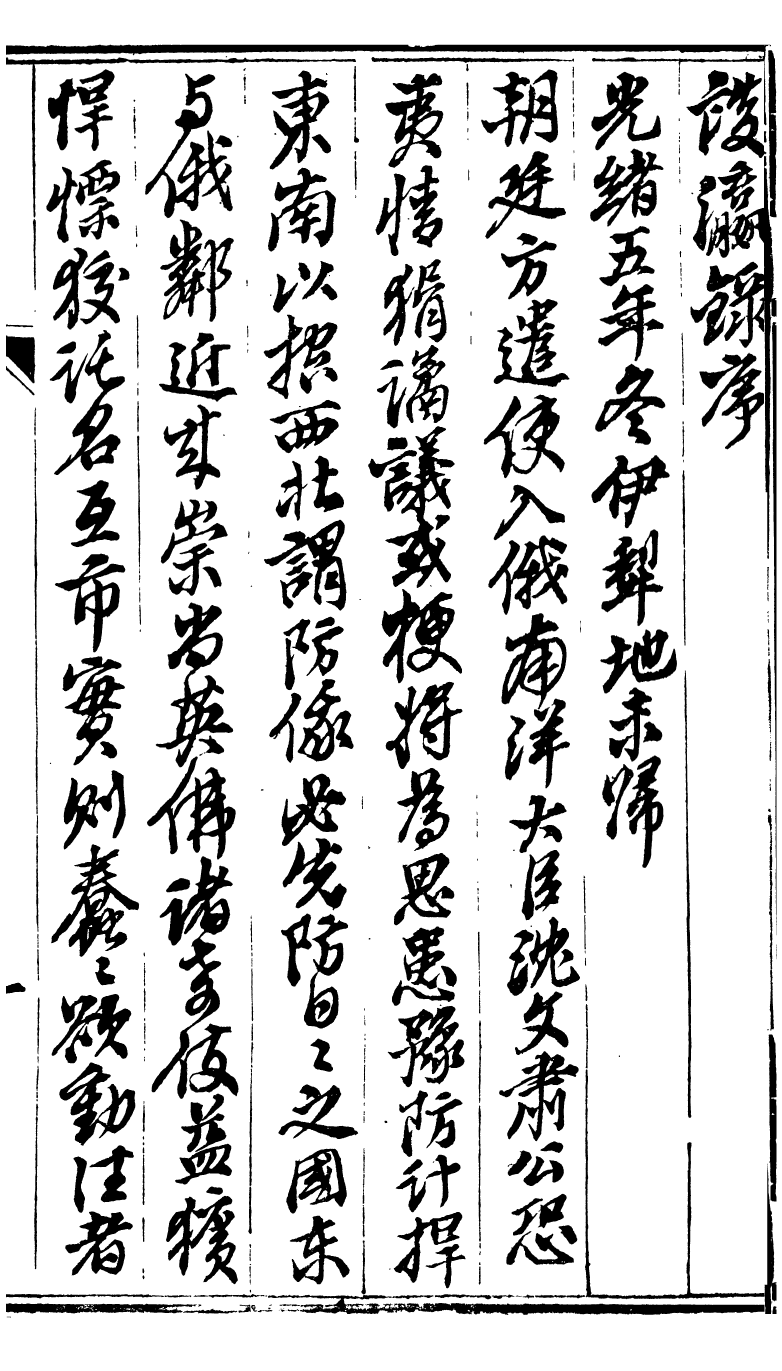 談瀛錄序
光緒五年冬伊犂地未歸
朝廷方遣使入俄南洋大臣沈文肅公恐
夷情猾譎議或梗將為思患豫防計捍
東南以控西北謂防俄必先防日〻之國東
与俄鄰近其崇尚英佛諸書伎益獷
悍慓狡託名互市實則蠢〻欲動往者